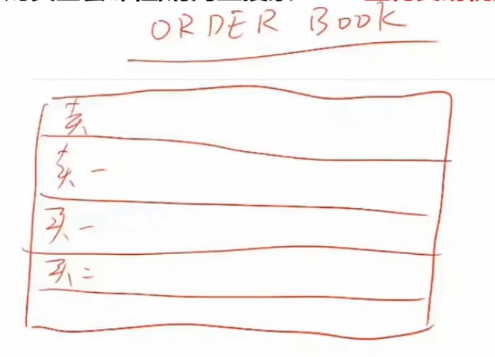 ORDER BOOK
卖
卖一
买一
买二